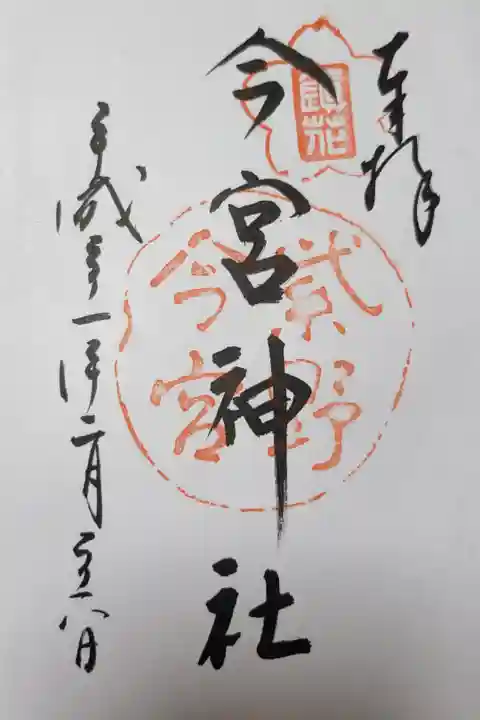 奉拝
鎮花
今宮神社
紫野
今宮
平成三十一年二月二十八日